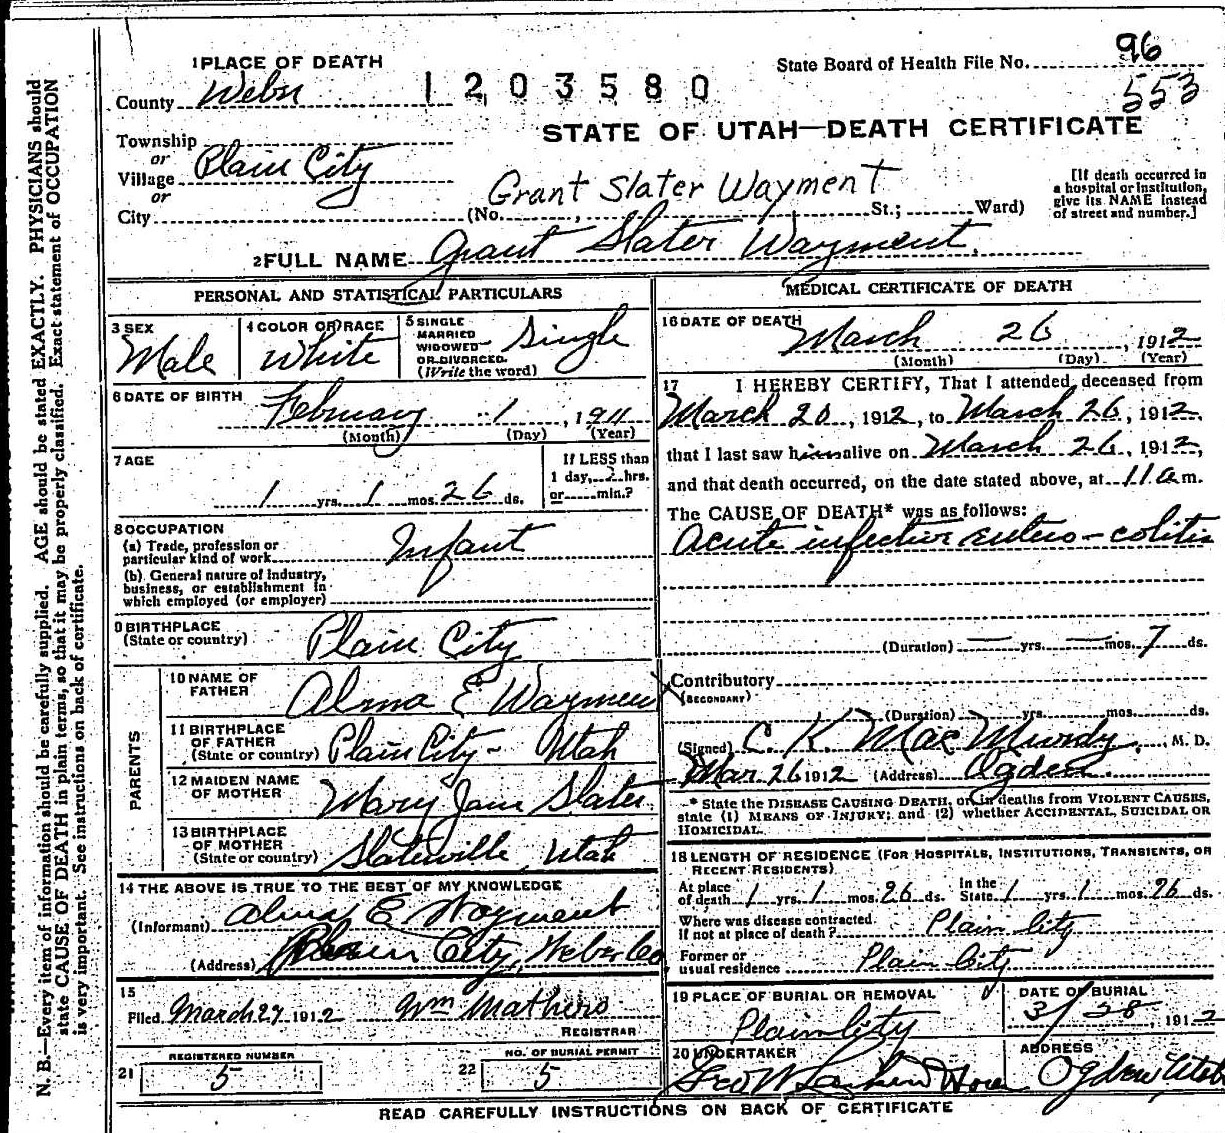 96
State Board of Health File No.
553
1 PLACE OF DEATH
County Weber
1203580
STATE OF UTAH—DEATH CERTIFICATE
Township
or
Village Plain City
or
City
Grant Slater Wayment
(No. , St.; Ward)
[If death occurred in a hospital or institution, give its NAME instead of street and number.]
2 FULL NAME Grant Slater Wayment.
PERSONAL AND STATISTICAL PARTICULARS
3 SEX
Male
4 COLOR OR RACE
White
5 SINGLE
MARRIED
WIDOWED
OR DIVORCED.
(Write the word)
Single
6 DATE OF BIRTH
February 1, 1911
(Month) (Day) (Year)
7 AGE
1 yrs. 1 mos. 26 ds.
If LESS than
1 day, hrs.
or min.?
8 OCCUPATION
(a) Trade, profession or
particular kind of work Infant
(b) General nature of industry,
business, or establishment in
which employed (or employer)
9 BIRTHPLACE
(State or country)
Plain City
PARENTS
10 NAME OF
FATHER
Alma E Wayment
11 BIRTHPLACE
OF FATHER
(State or country) Plain City - Utah
12 MAIDEN NAME
OF MOTHER
Mary Jane Slater
13 BIRTHPLACE
OF MOTHER
(State or country) Slaterville, Utah
14 THE ABOVE IS TRUE TO THE BEST OF MY KNOWLEDGE
(Informant) Alma E Wayment
(Address) Plain City, Weber Co
15
Filed March 27 1912 Wm Mathers
REGISTRAR
REGISTERED NUMBER
21 5
NO. OF BURIAL PERMIT
22 5
MEDICAL CERTIFICATE OF DEATH
16 DATE OF DEATH
March 26, 1912
(Month) (Day) (Year)
17 I HEREBY CERTIFY, That I attended deceased from
March 20, 1912, to March 26, 1912,
that I last saw him alive on March 26, 1912,
and that death occurred, on the date stated above, at 11 a m.
The CAUSE OF DEATH* was as follows:
Acute infective entero-colitis
(Duration) — yrs. — mos. 7 ds.
Contributory
(SECONDARY)
(Duration) yrs. mos. ds.
(Signed) C. K. MacMurdy, M. D.
Mar. 26 1912 (Address) Ogden.
* State the DISEASE CAUSING DEATH, or in deaths from VIOLENT CAUSES,
state (1) MEANS OF INJURY; and (2) whether ACCIDENTAL, SUICIDAL OR
HOMICIDAL.
18 LENGTH OF RESIDENCE (FOR HOSPITALS, INSTITUTIONS, TRANSIENTS, OR
RECENT RESIDENTS)
At place
of death 1 yrs. 1 mos. 26 ds. In the
State 1 yrs. 1 mos. 26 ds.
Where was disease contracted
If not at place of death? Plain City
Former or
usual residence Plain City
19 PLACE OF BURIAL OR REMOVAL
Plain City
DATE OF BURIAL
3/28, 1912
20 UNDERTAKER
Geo W Larkin
ADDRESS
Ogden Utah
READ CAREFULLY INSTRUCTIONS ON BACK OF CERTIFICATE
N. B.—Every item of information should be carefully supplied. AGE should be stated EXACTLY. PHYSICIANS should
state CAUSE OF DEATH in plain terms, so that it may be properly classified. Exact statement of OCCUPATION
is very important. See instructions on back of certificate.